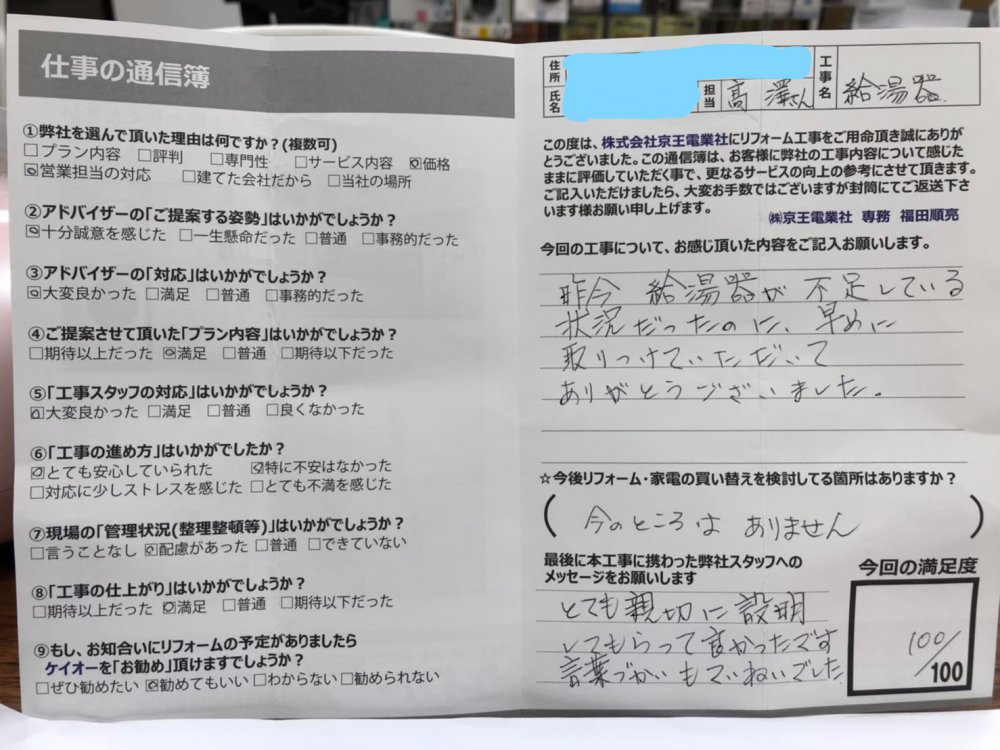 仕事の通信簿
①弊社を選んで頂いた理由は何ですか?(複数可)
□プラン内容 □評判 □専門性 □サービス内容 ☑価格
☑営業担当の対応 □建てた会社だから □当社の場所
②アドバイザーの「ご提案する姿勢」はいかがでしょうか?
☑十分誠意を感じた □一生懸命だった □普通 □事務的だった
③アドバイザーの「対応」はいかがでしょうか?
☑大変良かった □満足 □普通 □事務的だった
④ご提案させて頂いた「プラン内容」はいかがでしょうか?
□期待以上だった ☑満足 □普通 □期待以下だった
⑤「工事スタッフの対応」はいかがでしょうか?
☑大変良かった □満足 □普通 □良くなかった
⑥「工事の進め方」はいかがでしたか?
☑とても安心していられた ☑特に不安はなかった
□対応に少しストレスを感じた □とても不満を感じた
⑦現場の「管理状況(整理整頓等)」はいかがでしょうか?
□言うことなし ☑配慮があった □普通 □できていない
⑧「工事の仕上がり」はいかがでしょうか?
□期待以上だった ☑満足 □普通 □期待以下だった
⑨もし、お知合いにリフォームの予定がありましたら
ケイオーを「お勧め」頂けますでしょうか?
□ぜひ勧めたい ☑勧めてもいい □わからない □勧められない
住所
氏名
担当
高澤さん
工事名
給湯器
この度は、株式会社京王電業社にリフォーム工事をご用命頂き誠にありが
とうございました。この通信簿は、お客様に弊社の工事内容について感じた
ままに評価していただく事で、更なるサービスの向上の参考にさせて頂きます。
ご記入いただけましたら、大変お手数ではございますが封筒にてご返送下さ
います様お願い申し上げます。
㈱京王電業社 専務 福田順亮
今回の工事について、お感じ頂いた内容をご記入お願いします。
昨今 給湯器が不足している
状況だったのに、早めに
取りつけていただいて
ありがとうございました。
☆今後リフォーム・家電の買い替えを検討してる箇所はありますか?
(今のところは ありません)
最後に本工事に携わった弊社スタッフへの
メッセージをお願いします
とても親切に説明
してもらって良かったです
言葉づかいもていねいでした
今回の満足度
100/
100